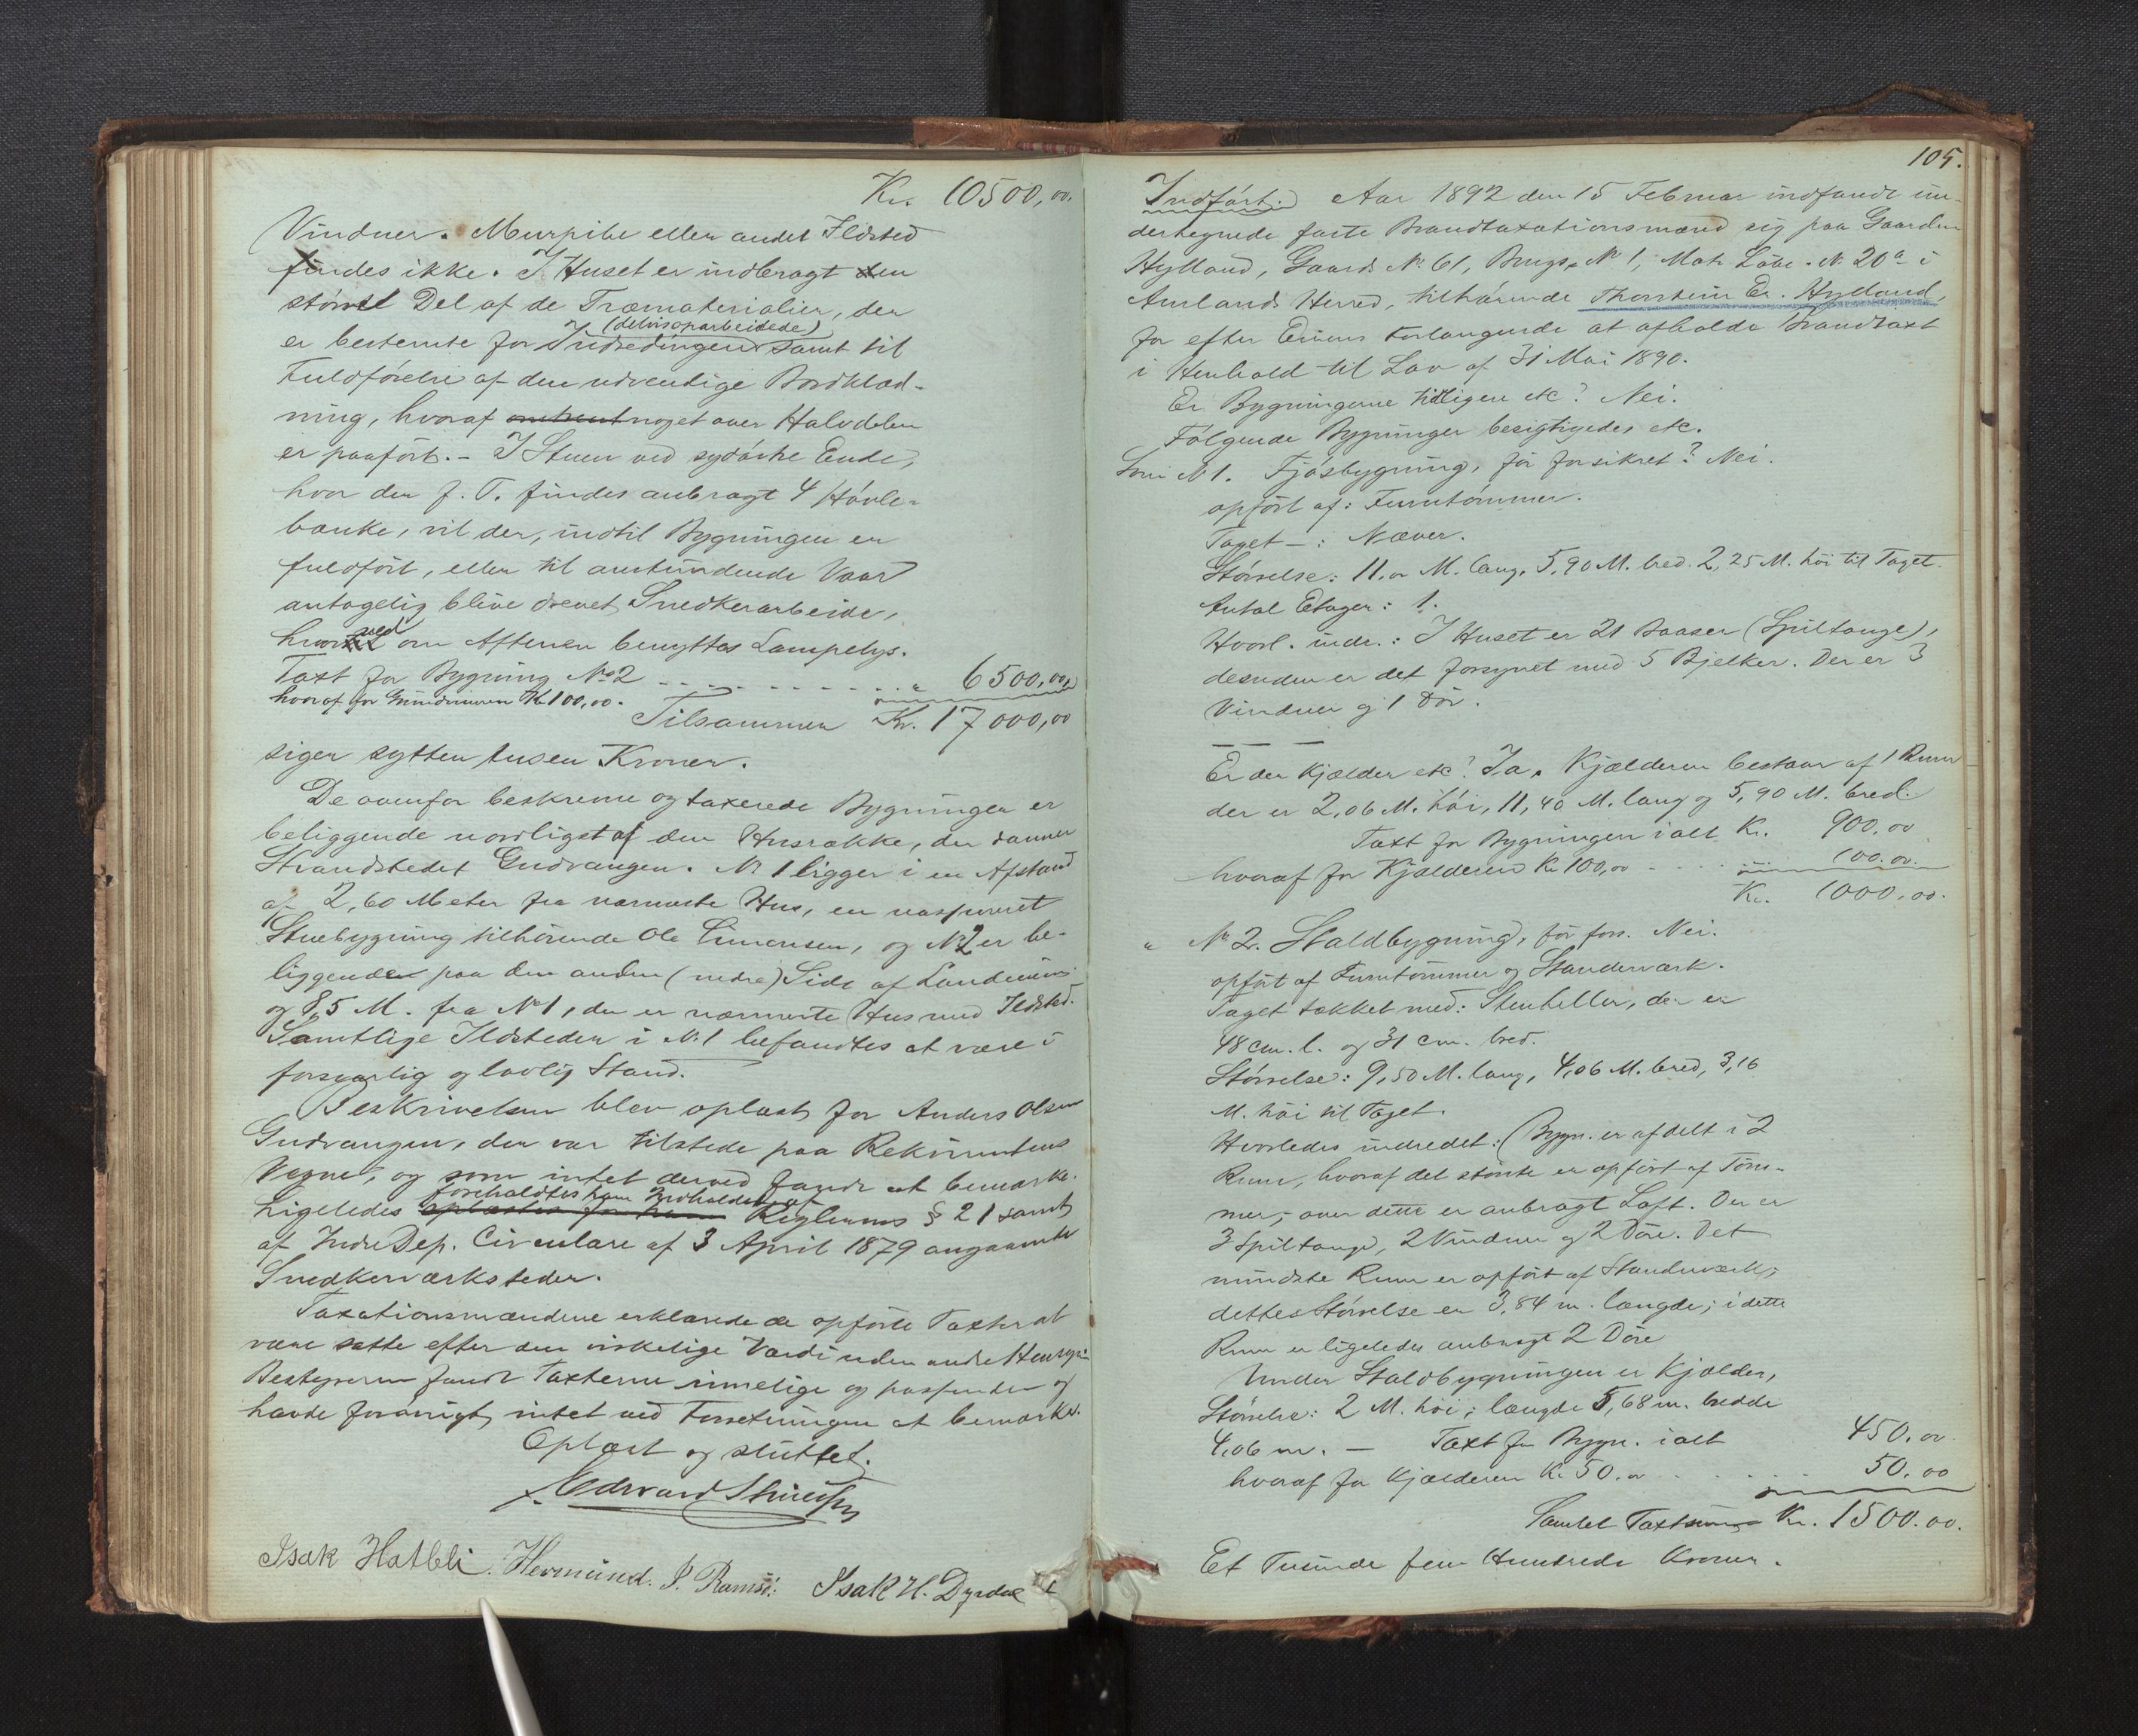 Kr. 10500,00.
Vinduer. Murpibe eller andet Ildsted
findes ikke. I Huset er indbragt den
størst Del af de Træmaterialier, der
(delvis oparbeidede)
er bestemte for Indredningen samt til
Fuldførelse af den udvendige Bordklæd-
ning, hvoraf omtrent noget over Halvdelen
er paaført. - I Stuen ved sydøstre Ende,
hvor der f. T. findes anbragt 4 Høvle-
bænke, vil der, indtil Bygningen er
fuldført, eller til anstundende Vaar
antagelig blive drevet Snedkerarbeide,
hvorved om Aftenen benyttes Lampelys.
Taxt for Bygning No 2 - - - - - - - - - " 6500,00
hvoraf for Grundmuren Kr 100,00.
Tilsammen Kr. 17000,00
siger sytten tusen Kroner.
De ovenfor beskrevne og taxerede Bygninger er
beliggende nordligst af den Husrække, der danner
Strandstedet Gudvangen. No 1 ligger i en Afstand
af 2,60 Meter fra nærmeste Hus, en
Stuebygning tilhørende Ole Simonsen, og No 2 er be-
liggende paa den anden (nedre) Side af Landeveien
og 8,5 M. fra No 1, der er nærmeste Hus med Ildsted.
Samtlige Ildsteder i No 1 befandtes at være i
forsvarlig og lovlig Stand.
Beskrivelsen blev oplæst for Anders Olsen
Gudvangen, der var tilstede paa Rekvirentens
Vegne, og som intet derved fandt at bemærke.
foreholdtes ham Indholdet af
Ligeledes oplæstes for ham Reglems § 21 samt
af Indre Dep. Circulære af 3 April 1879 angaaende
Snedkerværksteder.
Taxationsmændene erklærede de opførte Taxter at
være satte efter den virkelige Værdi uden andre Hensyn
Bestyreren fandt Taxterne rimelige og passende og
havde forøvrigt intet ved Forretningen at bemærke.
Oplæst og sluttet.
Isak Hatleli. Hermund. J. Ramsø: Isak H. Dyrdal
105.
Indført. Aar 1892 den 15 Februar indfandt un-
dertegnede faste Brandtaxationsmænd sig paa Gaarden
Hylland, Gaards No 61, Brugs No 1, Matr. Løbe-No 20a i
Aurlands Herred, tilhørende Thorstein Er. Hylland,
for efter Eierens Forlangende at afholde Brandtaxt
i Henhold til Lov af 31 Mai 1890.
Er Bygningerne tidligere etc? Nei.
Følgende Bygninger besigtigedes etc.
Som No 1. Fjøsbygning, før forsikret? Nei.
opført af: Furutømmer.
Taget - : Næver.
Størrelse: 11,00 M. lang, 5,90 M. bred. 2,25 M. høi til Taget.
Antal Etager: 1.
Hvorl. indr.: I Huset er 21 Baaser (Spiltouge),
desuden er det forsynet med 5 Bjelker. Der er 3
Vinduer og 1 Dør.
Er der Kjælder etc? Ja. Kjælderen bestaar af 1 Rum
der er 2,06 M. høi, 11,40 M. lang og 5,90 M. bred.
Taxt for Bygningen ialt Kr. 900,00
hvoraf for Kjælderen Kr 100,00 - - - 100.00.
Kr. 1000,00.
" No 2. Staldbygning, før fors. Nei.
opført af Furutømmer og Standerværk.
Taget tækket med: Stenheller, der er
48 cm. l. og 31 cm. bred.
Størrelse: 9,50 M. lang, 4,06 M. bred, 3,16
M. høi til Taget.
Hvorledes indredet: (Bygn. er afdelt i 2
Rum, hvoraf det største er opført af Tøm-
mer; over dette er anbragt Loft. Der er
3 Spiltouge, 2 Vinduer og 2 Døre. Det
mindste Rum er opført af Standerværk;
dettes Størrelse er 3,84 m. længde; i dette
Rum er ligeledes anbragt 2 Døre
Under Staldbygningen er Kjælder,
Størrelse: 2 M. høi; længde 5,68 m. bredde
4,06 m. — Taxt for Bygn. ialt 450.00
hvoraf for Kjælderen Kr 50.00 - - - 50.00
Samlet Taxtsum Kr. 1500.00.
Et Tusinde fem Hundrede Kroner.